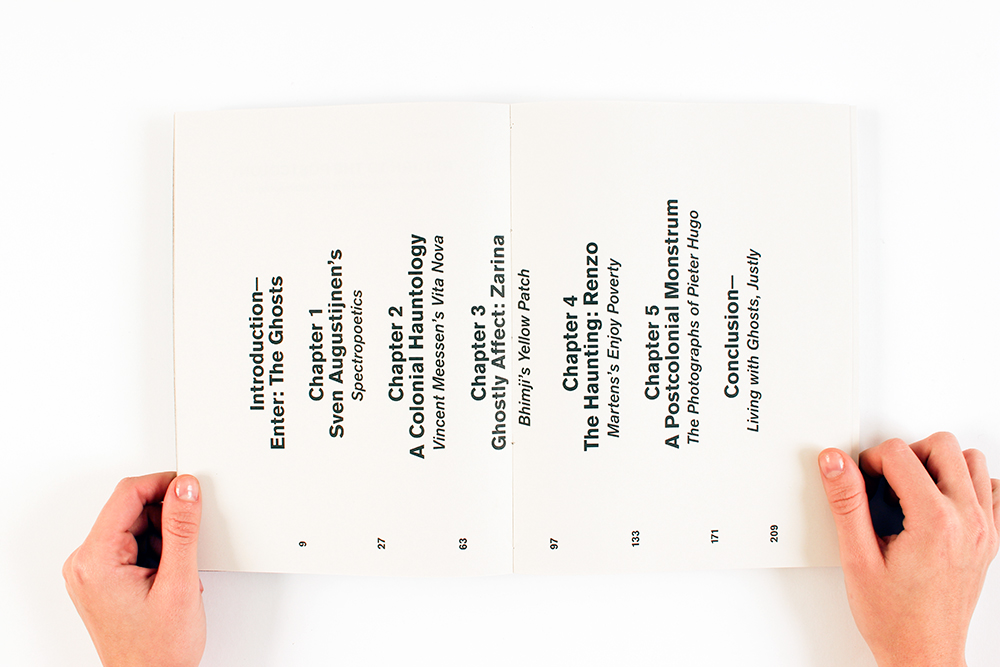 Introduction—
Enter: The Ghosts
9
Chapter 1
Sven Augustijnen's
Spectropoetics
27
Chapter 2
A Colonial Hauntology
Vincent Meessen's Vita Nova
63
Chapter 3
Ghostly Affect: Zarina
Bhimji's Yellow Patch
97
Chapter 4
The Haunting: Renzo
Martens's Enjoy Poverty
133
Chapter 5
A Postcolonial Monstrum
The Photographs of Pieter Hugo
171
Conclusion—
Living with Ghosts, Justly
209